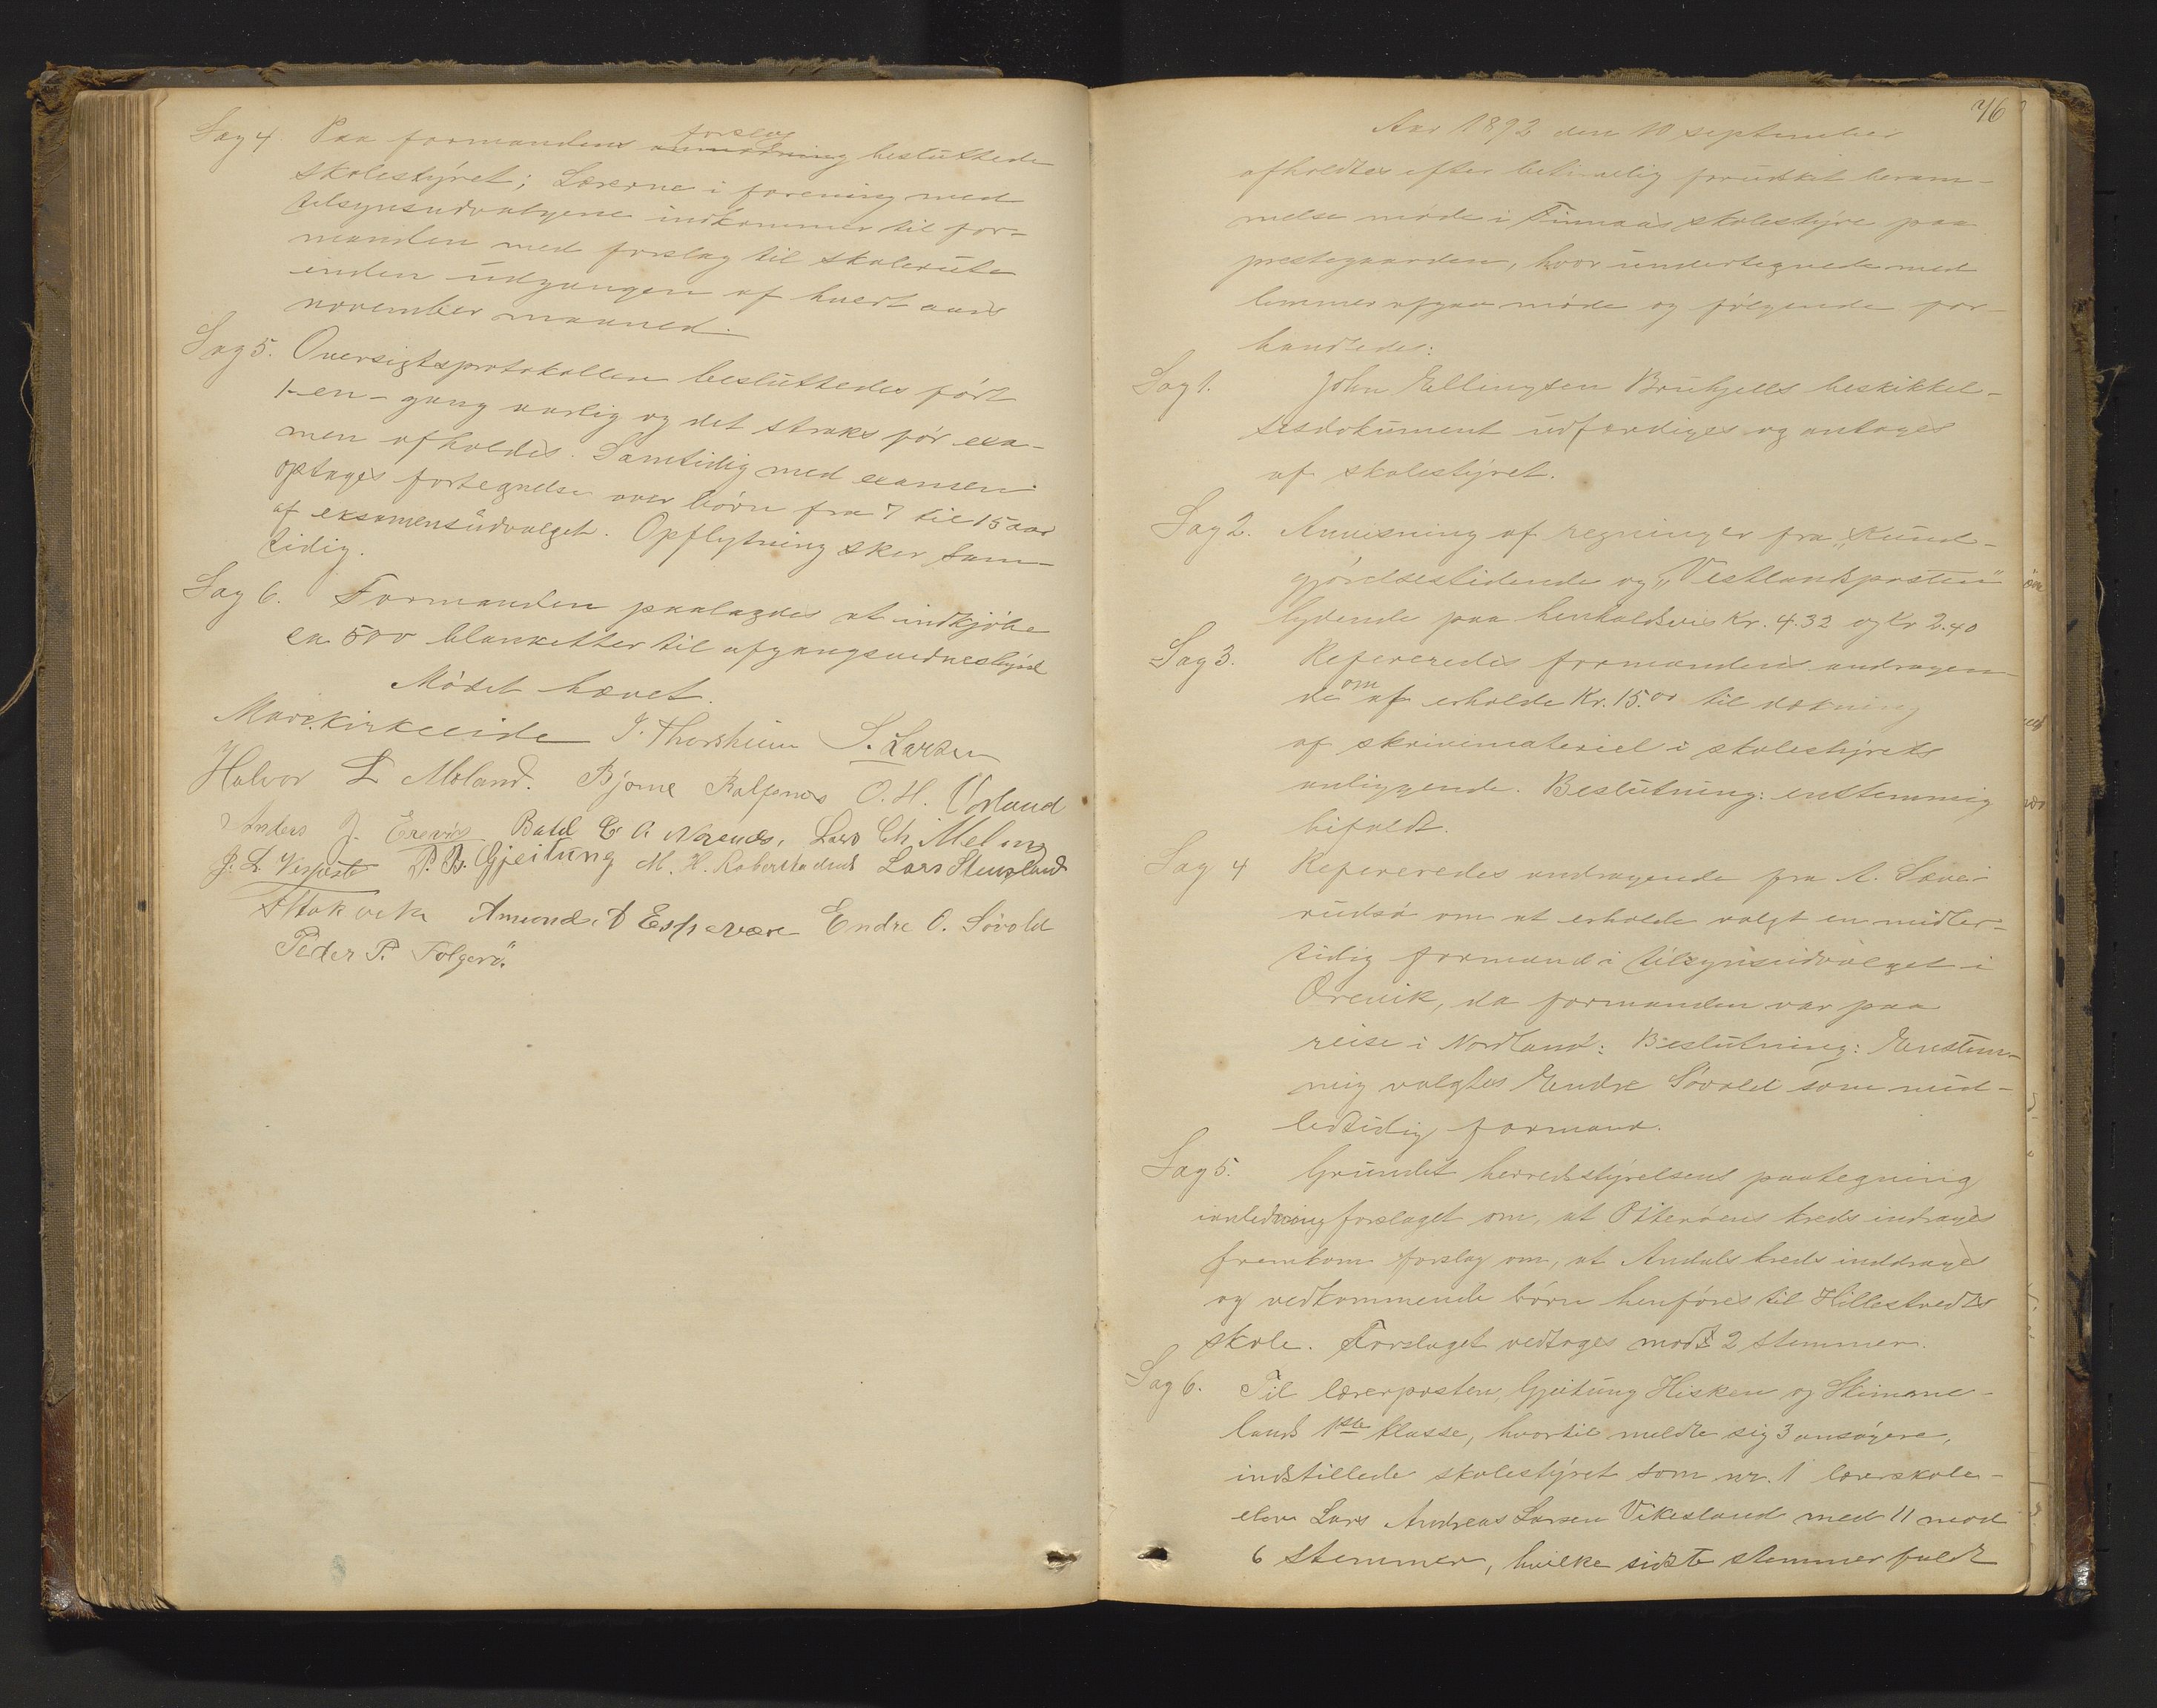 Sag 4. Paa formandens anmodning forslag besluttede
skolestyret; Lærerne i forening med
tilsynsudvalgene indkommer til for-
manden med forslag til skolerute
inden udgangen af hvert aars
november maaned.
Sag 5. Oversigtsprotokollen besluttedes ført
1-en-gang aarlig og det straks før exa-
men afholdes. Samtidig med examen
optages fortegnelse over børn fra 7 til 15 aar
af eksamensudvalget. Opflytning sker sam-
tidig.
Sag 6. Formanden paalagdes at indkjøbe
ca 500 blanketter til afgangsvidnesbyrd
Mødet hævet.
Marc. Kirkeeide J. Thorsheim S. Larsen
Halvor L Mæland. Bjørne Kalfenes O. H. Vorland
Anders J. Erevig Batel C. A. Norenes, Lars Ch Meling
J. L. Vespestø P. B. Gjeitung M. H. Robertstadius Lars Stensland
A Stokvik Amund A Espevær Endre O. Søvold
Peder P. Folgerø.
76
Aar 1892 den 10 september
afholdtes efter betimelig forudskikt beram-
melse møde i Finnaas skolestyre paa
prestegaarden, hvor undertegnede med
lemmer afgav møde og følgende for-
handledes:
Sag 1. John Ellingsen Brukjells beskikkel-
sesdokument udfærdiges og antoges
af skolestyret.
Sag 2. Anvisning af regninger fra „Kund-
gjørelsestidende og „Vestlandsposten"
lydende paa henholdsvis Kr. 4.32 og Kr 2.40
Sag 3. Refereredes formandens andragen-
de om at erholde Kr. 15.00 til dækning
af skrivemateriel i skolestyrets
anliggende. Beslutning: enstemmig
bifaldt.
Sag 4 Refereredes andragende fra A. Sæve-
rudsø om at erholde valgt en midler-
tidig formand i tilsynsudvalget i
Orevik, da formanden var paa
reise i Nordland: Beslutning: Enstem-
mig valgtes Endre Søvold som mid-
lertidig formand.
Sag 5. Grundet herredsstyrelsens paategning
forslaget om, at Otterøens kreds indrages
fremkom forslag om, at Andals kreds inddrages
og vedkommende børn henføres til Hillestvedts
skole. Forslaget vedtoges mod 2 stemmer.
Sag 6. Til lærerposten, Gjeitung Hisken og Stimme-
lands 1ste klasse, hvortil meldte sig 3 ansøgere,
indstillede skolestyret som nr. 1 lærerskole-
elev Lars Andreas Larsen Vikesland med 11 mod
6 stemmer, hvilke sidste stemmer faldt